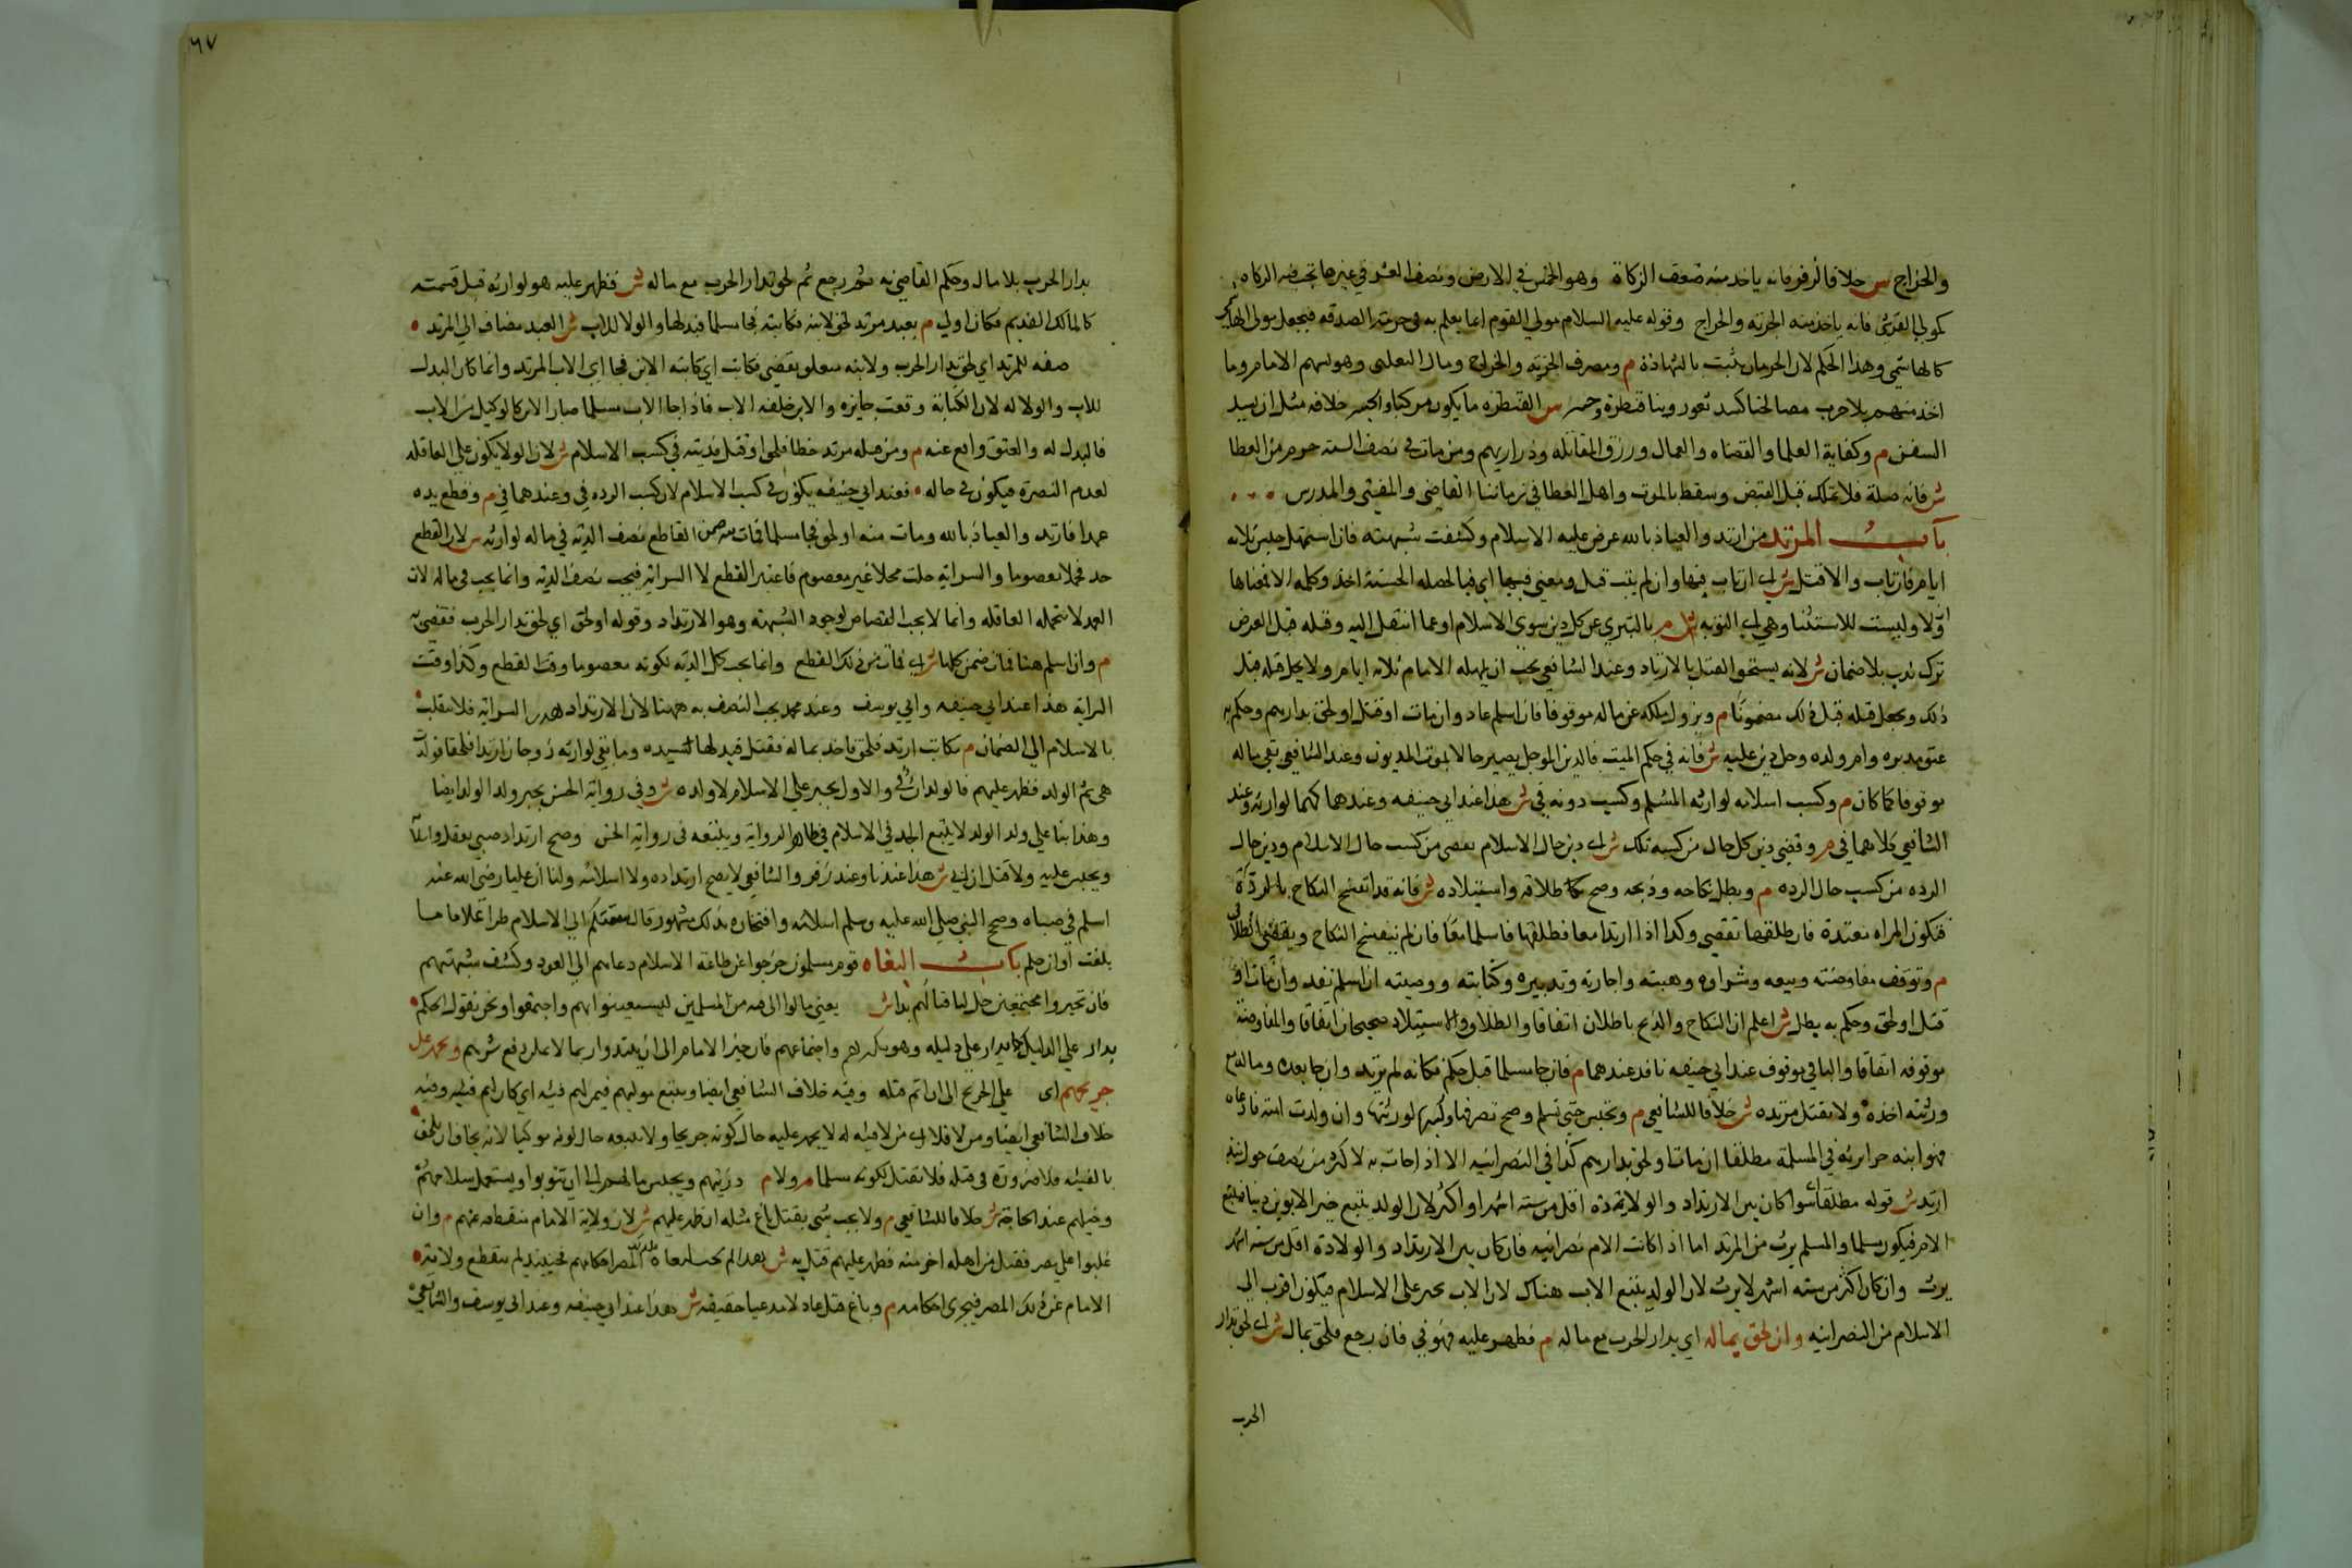 والخراج س خلافا لزفر فانه ياخذ منه ضعف الزكاة وهو الخمس في الارض ونصف العشر في غيرها تجب فيه الزكاه
كمولى القرشي فانه ياخذ منه الجزيه والخراج وقوله عليه السلام مولي القوم انما يعلم به في حرمة الصدقه فيجعل مولى الهاشمي
كالهاشمي وهذا الحكم لان الحرمان يثبت بالشهادة م ومصرف الجزيه والخراج ومال التغلبي وهديتهم الامام وما
اخذ منهم بلا حرب مصالحنا كسد ثغور وبنا قنطرة وجسر س القنطره ما يكون مركبا والجسر خلافه مثل ان يسد
السفن م وكفاية العلما والقضاه والعمال ورزق المقاتله وذراريهم ومن مات في نصف السنه حرم من العطا
ش فانه صلة فلا تملك قبل القبض وسقط بالموت واهل العطا في زماننا القاضي والمفتي والمدرس
باب المرتد من ارتد والعياذ بالله عرض عليه الاسلام وكشفت شبهته فان استمهل حبس ثلاثه
ايام فان تاب والا قتل ش اي ان تاب فبها وان لم يتب قتل ومعني فبها اي فبالخصله الحسنه اخذ وكلمه الا معناها
ولا وليست للاستثنا وهي اي التوبه ش م بالتبري عن كل دين سوي الاسلام او عما انتقل اليه وقتله قبل العرض
ترك ندب بلا ضمان ش لانه يستحق القتل بالارتداد وعند الشافعي يجب ان يمهله الامام ثلاثه ايام ولا يحل قتله قبل
ذلك ويجعل قتله قبل ذلك مضمونا م ويزول ملكه عن ماله موقوفا فان اسلم عاد وان مات او قتل او لحق بدارهم وحكم به
عتق مدبره وام ولده وحل دين عليه ش فانه في حكم الميت فالدين الموجل يصير حالا بموت المديون وعند الشافعي بقي ماله
موقوفا كما كان م وكسب اسلامه لوارثه المسلم وكسب ردته في ش هذا عند ابي حنيفه وعندهما كلهما لوارثه وعند
الشافعي كلاهما في م وقضي دين كل حال من كسب تلك ش اي دين حال الاسلام يقضي من كسب حال الاسلام ودين حال
الرده من كسب حال الرده م وبطل نكاحه وذبحه وصح طلاقه واستيلاده ش فانه قد انفسخ النكاح بالردة
فتكون المراه معتدة فان طلقها تقضي وكذا اذا ارتدا معا فطلقها فاسلما معا فان لم ينفسخ النكاح ويقضي الطلاق
م وتوقف مفاوضته وبيعه وشراوه وهبته واجارته وتدبيره وكتابته ووصيته ان اسلم نفذ وان مات او
قتل او لحق وحكم به بطل ش اعلم ان النكاح والذبح باطلان اتفاقا والطلاق والاستيلاد صحيحان اتفاقا والمفاوضه
موقوفه اتفاقا والباقي موقوف عند ابي حنيفه نافذ عندهما م فان جا مسلما قبل حكم فكانه لم يرتد وان جا بعده وماله مع
ورثته اخذه ولا تقتل مرتده ش خلافا للشافعي م وتحبس حتي تسلم وصح تصرفها وكسبها لورثتها وان ولدت امته فادعاه
فهو ابنه حرا يرثه في المسلمة مطلقا ان مات او لحق بدارهم كذا في النصرانيه الا اذا جات به لاكثر من نصف حول منذ
ارتد ش قوله مطلقا سوا كان بين الارتداد والولادة اقل من سته اشهر او اكثر لان الولد يتبع خير الابوين دينا فيتبع
الام فيكون مسلما والمسلم يرث من المرتد اما اذا كانت الام نصرانيه فان كان بين الارتداد والولادة اقل من سته اشهر
يرث وان كان اكثر من سته اشهر لا يرث لان الولد يتبع الاب هناك لان الاب يجبر على الاسلام فيكون اقرب الى
الاسلام من النصرانيه وان لحق بماله اي بدار الحرب مع ماله م فظهر عليه فهو في فان رجع فلحق بمال ش اي لحق بدار
الحرب
٦٧
بدار الحرب بلا مال وحكم القاضي به ثم رجع ثم لحق بدار الحرب مع ماله ش فظهر عليه هو لوارثه قبل قسمته
كالمالك القديم فكان اولي م بعبد مرتد لحق لابنه فكاتبه فجا مسلما فبدلها والولا للاب ش العبد مضاف الي المرتد
صفه للمرتد اي لحق بدار الحرب ولابنه متعلق بقضي فكاتب اي كاتبه الابن فجا اي الاب المرتد وانما كان البدل
للاب والولا له لان الكتابة وقعت جايزه والابن خلفه الاب فاذا جا الاب مسلما صار الابن كالوكيل من الاب
فالبدل له والعتق واقع عنه م ومن قتله مرتد خطا فلحق او قتل فديته في كسب الاسلام ش لان الولا يكون علي العاقله
لعدم النصرة فيكون في ماله فعند ابي حنيفه يكون في كسب الاسلام لان كسب الرده في وعندهما في م وقطع يده
عمدا فارتد والعياذ بالله ومات منه او لحق فجا مسلما فمات منه ضمن القاطع نصف الديه في ماله لوارثه س لان القطع
حد محلا معصوما والسرايه حلت محلا غير معصوم فاعتبر القطع لا السرايه فيجب نصف الديه وانما يجب في ماله لان
العمد لا تتحمله العاقله وانما لا يجب القصاص لوجود الشبهه وهو الارتداد وقوله او لحق اي لحق بدار الحرب فقضي به
م وان اسلم هنا فمات ضمن كلها ش اي فمات من ذلك القطع وانما يجب كل الديه لكونه معصوما وقت القطع وكذا وقت
السرايه هذا عند ابي حنيفه وابي يوسف وعند محمد يجب النصف به ههنا لان الارتداد هدر السرايه فلا ينقلب
بالاسلام الي الضمان م مكاتب ارتد فلحق فاخذ بماله فقتل فبدلها لسيده وما بقي لوارثه زوجان ارتدا فلحقا فولدت
هي ثم الولد فظهر عليهم فالولدان في والاول يجبر علي الاسلام لا ولده ش وفي رواية الحسن يجبر ولد الولد ايضا
وهذا بنا علي ولد الولد لا يتبع الجد في الاسلام في ظاهر الرواية ويتبعه في رواية الحسن وصح ارتداد صبي يعقل واسلامه
ويجبر عليه ولا قتل ان ابي ش هذا عندنا وعند زفر والشافعي لا يصح ارتداده ولا اسلامه ولنا ان عليا رضي الله عنه
اسلم في صباه وصح النبي صلي الله عليه وسلم اسلامه وافتخاره بذلك مشهور قال سبقتكم الي الاسلام طرا غلاما ما
بلغت اوان حلم باب البغاه قوم مسلمون خرجوا عن طاعة الاسلام دعاهم الي العود وكشف شبهتهم
فان تحيزوا مجتمعين حل لنا قتالهم بدا ش يعني مالوا الى فيه من المسلمين ليستعينوا بهم واجتمعوا ونحن نقول الحكم
يدار علي الدليل علي دليله وهو واجتماعهم فان خير الامام الى ان يبتدوا ربما لا يمكن دفع شرهم ويجهز على
جريحهم اى علي الجريح الى ان اتم قتله وفيه خلاف الشافعي ايضا ويتبع موليهم فيمن لهم فيئه اي كان لهم فيئه وفيه
خلاف الشافعي ايضا ومن لا فلا اى من لا فيئه له لا يجهز عليه حال كونه جريحا ولا يتبعه حال كونه موليا لانه يخاف ان يلحق
بالفيئه فلا ضرورة في قتله فلا تقتل لكونه مسلما م ولا م ذريتهم ويحبس مالهم الي ان يتوبوا ويستعمل سلاحهم
وخيلهم عند الحاجه ش خلافا للشافعي م ولا يجب شي بقتل باغ مثله ان ظهر عليهم ش لان ولاية الامام منقطعه عنهم م وان
غلبوا علي مصر فقتل من اهله اخر منه فظهر عليهم قتل به ش هذا لم المصر احكامهم فحينئذ لم تنقطع ولايته
الامام عن ذلك المصر فيجرى احكامه م وباغ قتل عادلا مدعيا حقيقه ش هذا عند ابي حنيفه وعند ابي يوسف والشافعي